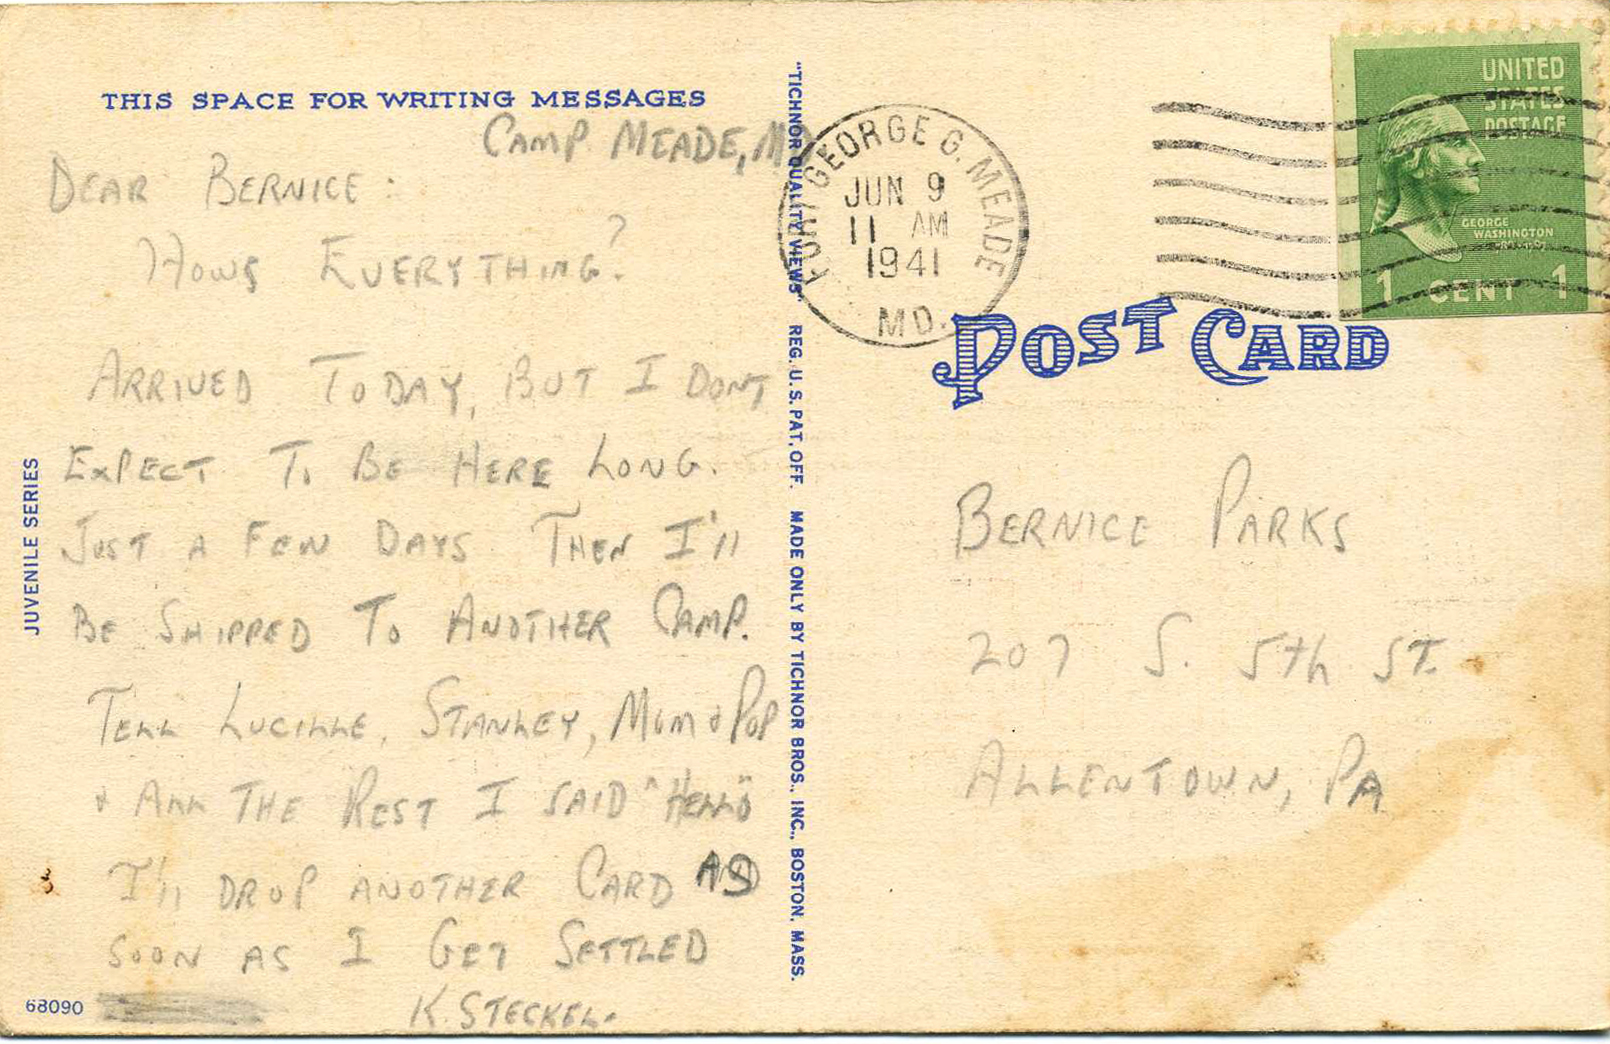 THIS SPACE FOR WRITING MESSAGES
CAMP MEADE, MD
DEAR BERNICE:
HOWS EVERYTHING?
ARRIVED TODAY, BUT I DONT
EXPECT TO BE HERE LONG.
JUST A FEW DAYS THEN I'll
BE SHIPPED TO ANOTHER CAMP.
TELL LUCILLE, STANLEY, MOM & POP
& ALL THE REST I SAID "HELLO"
I'll DROP ANOTHER CARD AS
SOON AS I GET SETTLED
K. STECKEL.
JUVENILE SERIES
68090
"TICHNOR QUALITY VIEWS" REG. U. S. PAT. OFF. MADE ONLY BY TICHNOR BROS., INC., BOSTON, MASS.
FORT GEORGE G. MEADE
JUN 9
11 AM
1941
MD.
UNITED
STATES
POSTAGE
GEORGE
WASHINGTON
1 CENT 1
POST CARD
BERNICE PARKS
207 S. 5th ST.
ALLENTOWN, PA